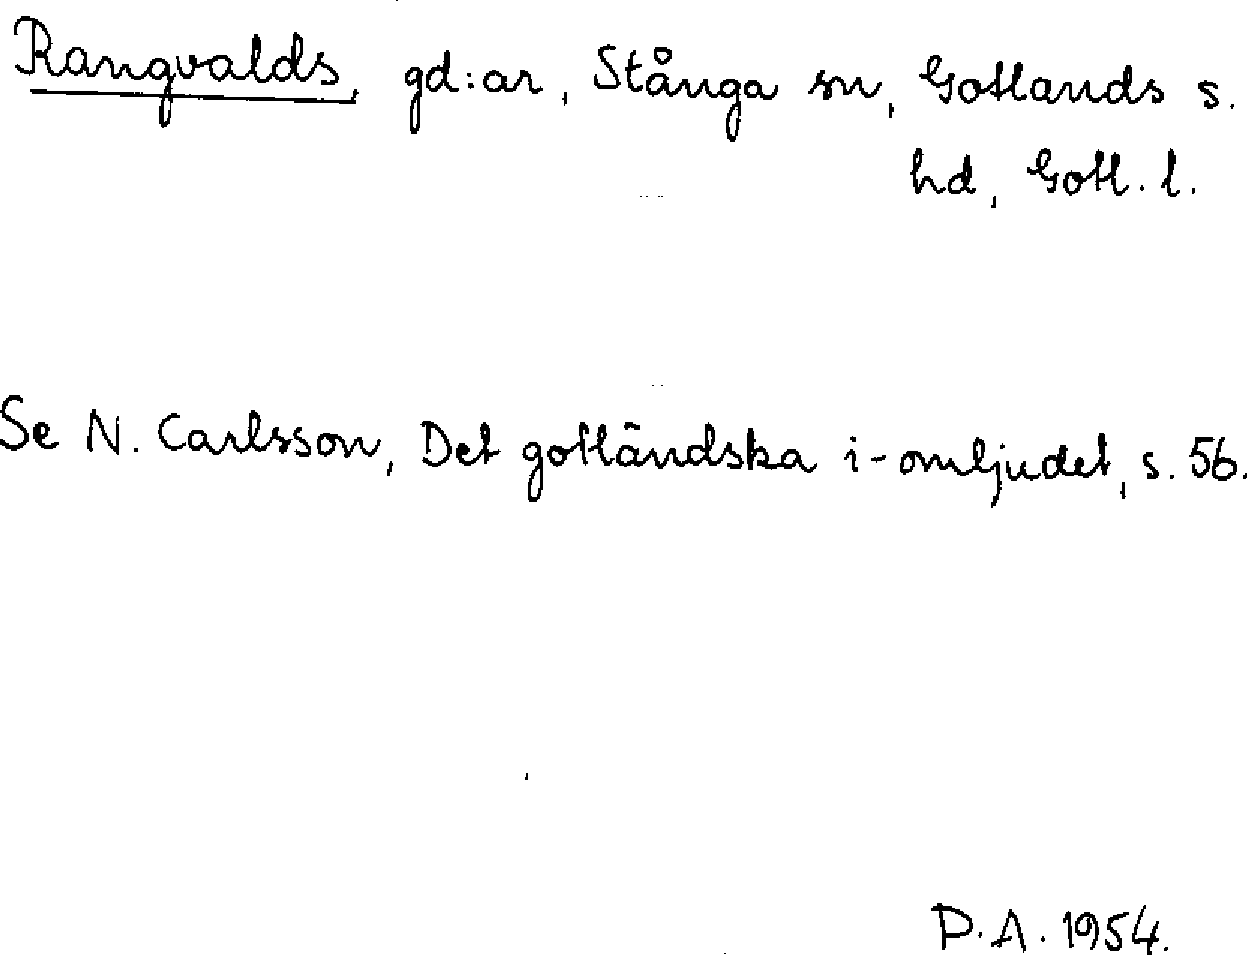 Rangvalds, gd:ar, Stånga sn, Gotlands s.
hd, Gotl. l.
Se N. Carlsson, Det gotländska i-omljudet, s. 56.
P.A. 1954.